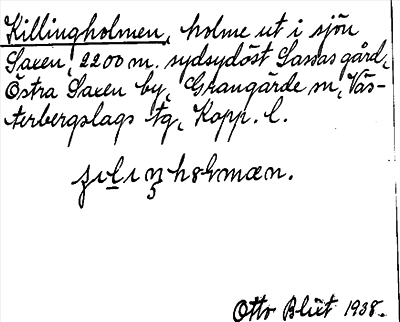 Killingholmen, holme ut i sjön
Saxen, 2200 m. sydsydöst Sassas gård,
Östra Saxen by, Grangärde sn, Väs-
terbergslags tg, Kopp. l.
Otto Blixt 1938.